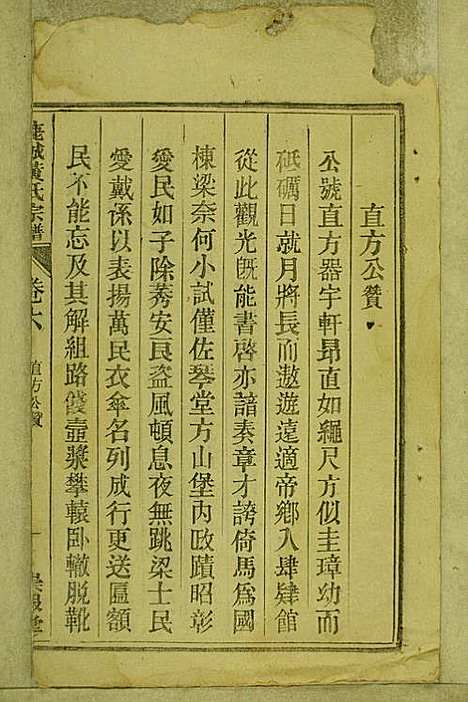 直方公贊
公號直方器宇軒昂直如繩尺方似圭璋幼而
砥礪日就月將長而遨遊遠適帝鄉入肆肄館
從此觀光旣能書啓亦諳奏章才誇倚馬爲國
棟梁奈何小試僅佐琴堂方山堡內政蹟昭彰
愛民如子除莠安良盜風頓息夜無跳梁士民
愛戴係以表揚萬民衣傘名列成行更送匾額
民不能忘及其解組路餞壺漿攀轅卧轍脫靴
黃氏宗譜 卷六 直方公贊 一